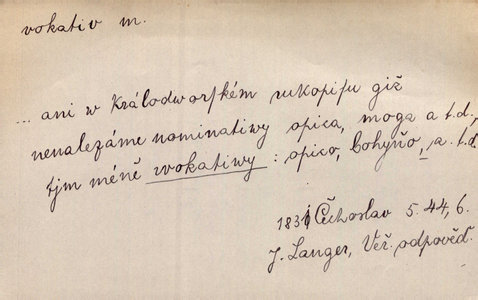 vokativ m.
... ani w Králodworſkém rukopiſu giž
nenalezáme nominatiwy opica, moga a t.d.,
tjm méně wokatiwy : opico, bohyňo, a t.d.
1831 Čechoslav 5. 44, 6.
J. Langer, Veř. odpověď.